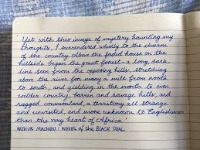 Yet with this image of mystery haunting my
thoughts, I surrendered wholly to the charm
of the country. Above the faded house on the
hillside began the great forest - a long dark
line seen from the opposing hills, stretching
above the river for many a mile from north
to south, and yielding in the north to even
wilder country, barren and savage hills, and
ragged commonland, a territory all strange
and unvisited, and more unknown to Englishmen
than the very heart of Africa.
ARTHUR MACHEN | NOVEL of the BLACK SEAL